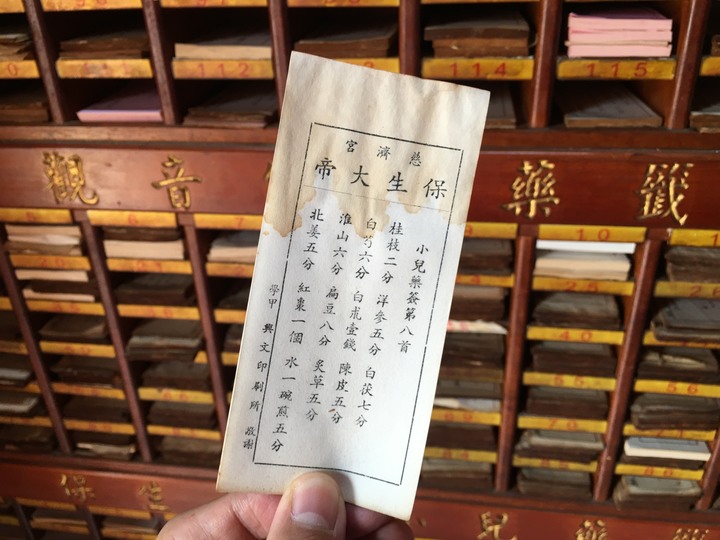 112
114
115
慈濟宮
保生大帝
小兒藥簽第八首
桂枝二分 洋參五分 白茯七分
白芍六分 白朮壹錢 陳皮五分
淮山六分 扁豆八分 炙草五分
北姜五分 紅棗一個 水一碗煎五分
學甲 興文印刷所 敬謝
觀音
藥籤
5
6
7
10
20
30
40
50
60
保生
兒藥